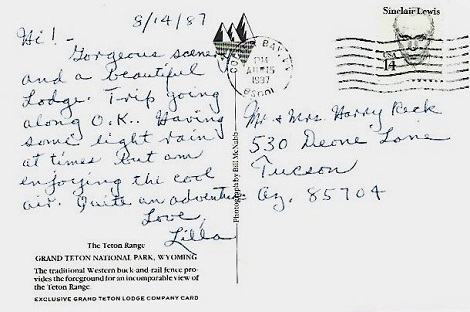 8/14/87
Hi! -
Gorgeous scenery
and a beautiful
Lodge. Trip going
along O.K.. Having
some light rain
at times but am
enjoying the cool
air. Quite an adventure
Love,
Lilla
The Teton Range
GRAND TETON NATIONAL PARK, WYOMING
The traditional Western buck-and-rail fence pro-
vides the foreground for an incomparable view of
the Teton Range.
EXCLUSIVE GRAND TETON LODGE COMPANY CARD
Photograph by Bill McNabb
BAY
PM
15
1987
Sinclair Lewis
USA
14
Mr. & Mrs. Harry Peck
530 Deone Lane
Tucson
Az. 85704